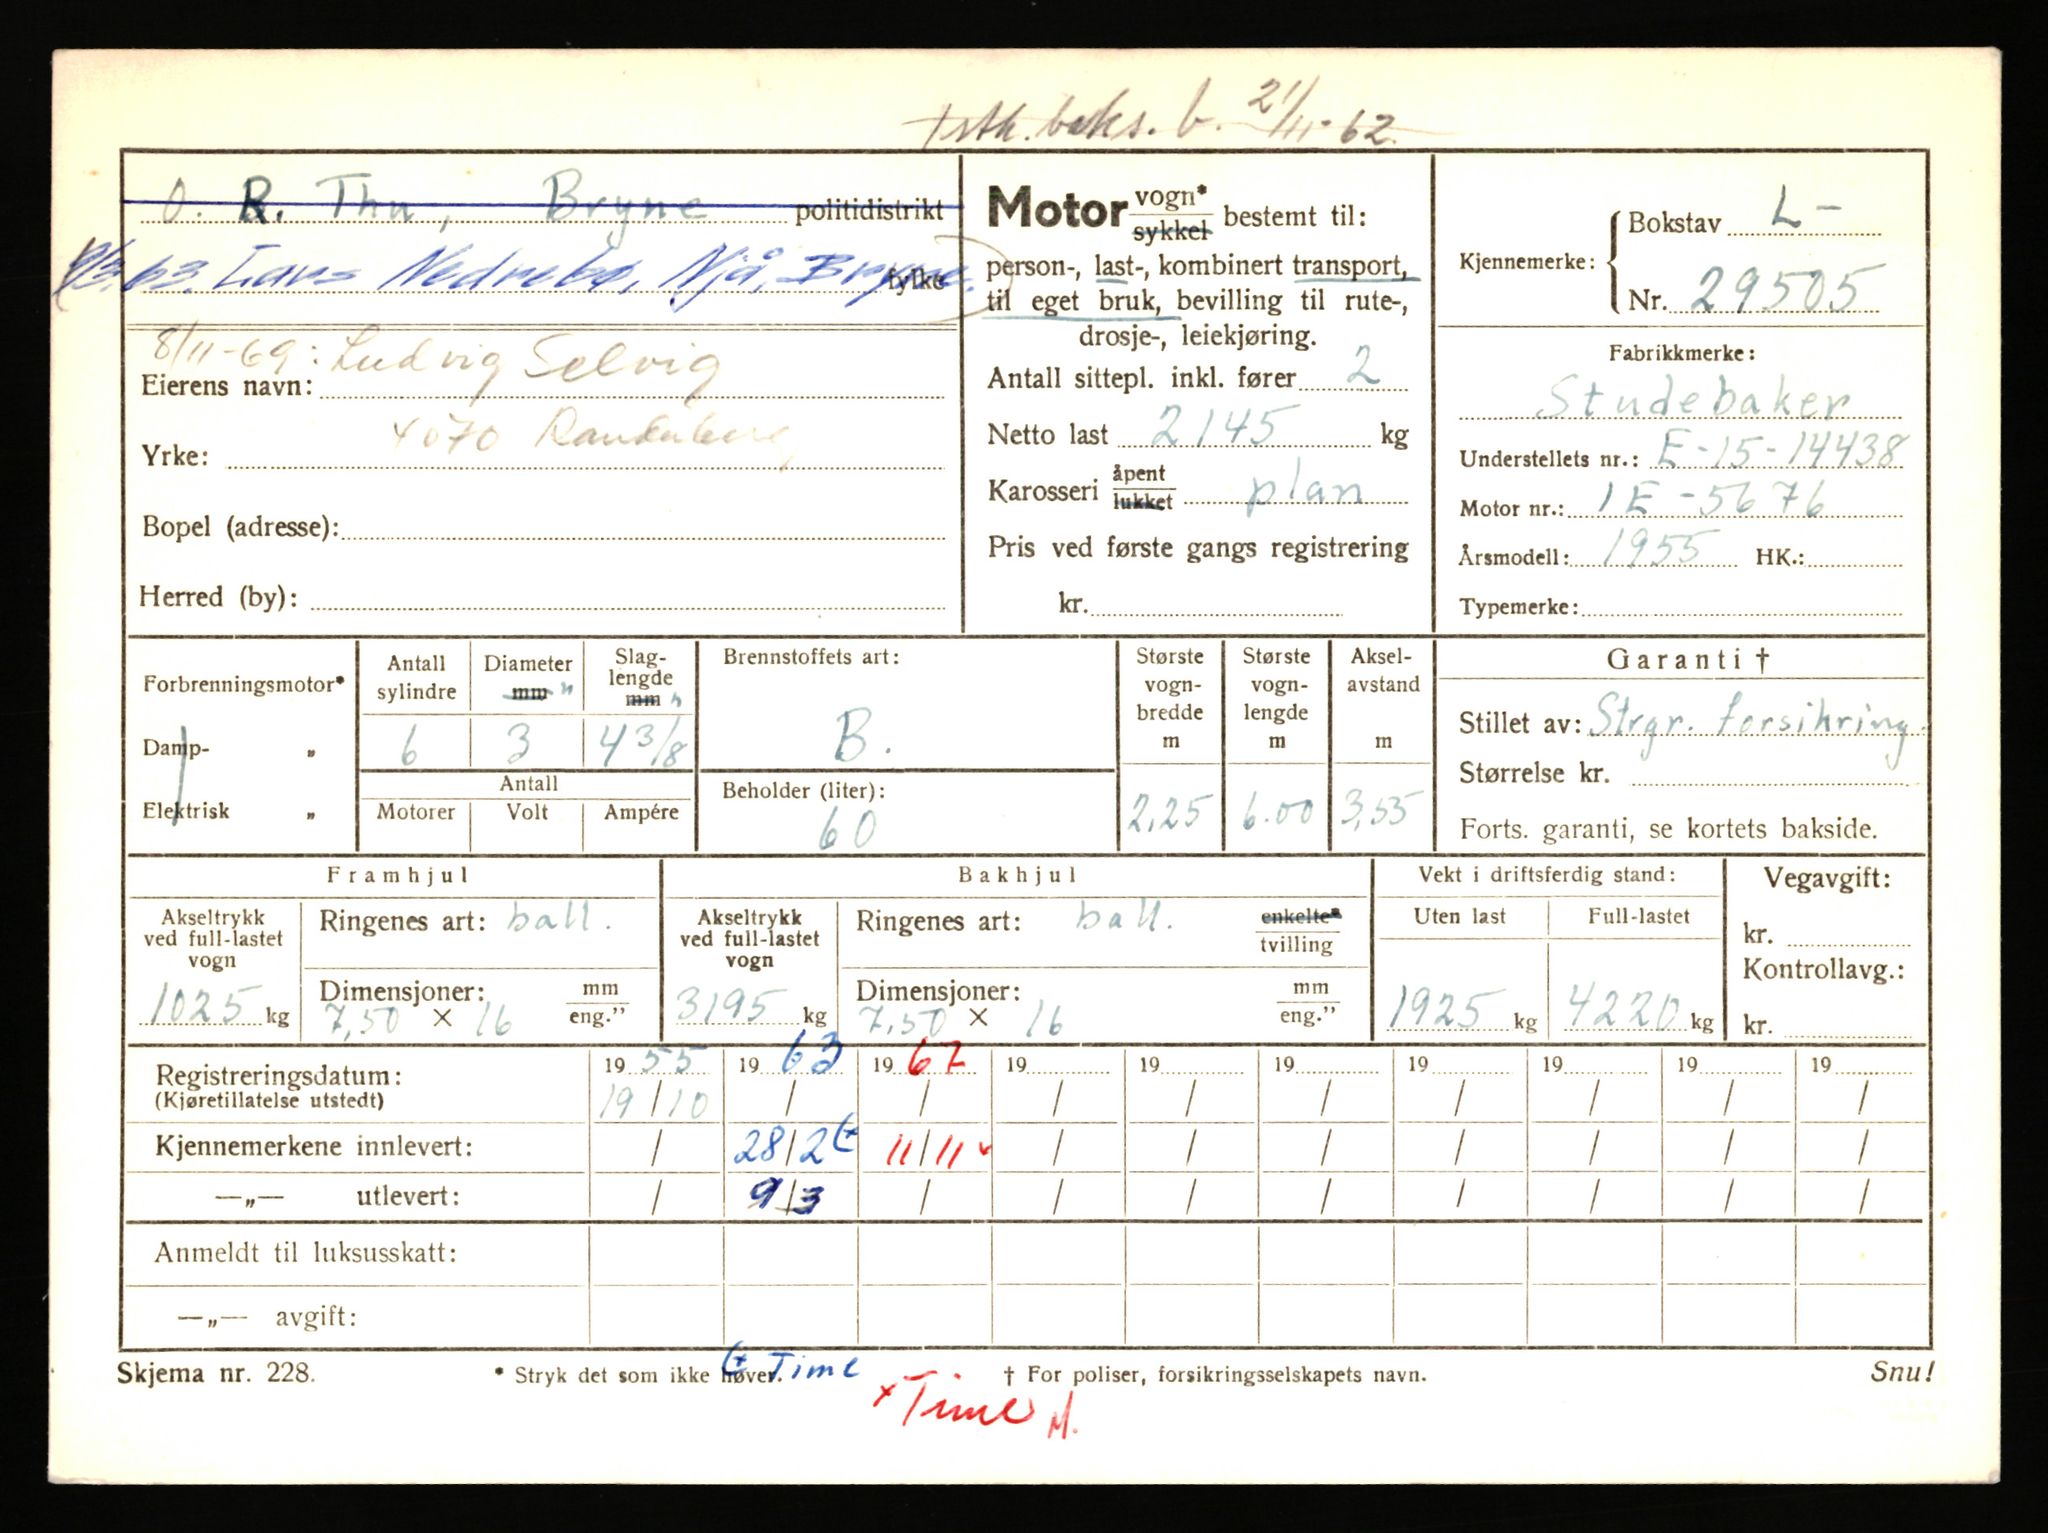 baks. b. 21/11-62
O. R. Thu, Bryne politidistrikt
9/3.63. Lars Nedrebø, Njå, Bryne. fylke
8/11-69: Ludvig Selvig
Eierens navn:
4070 Randaberg
Yrke:
Bopel (adresse):
Herred (by):
Motor vogn* sykkel bestemt til:
person-, last-, kombinert transport,
til eget bruk, bevilling til rute-,
drosje-, leiekjøring.
Antall sittepl. inkl. fører 2
Netto last 2145 kg
Karosseri åpent lukket plan
Pris ved første gangs registrering
kr.
Kjennemerke: Bokstav L-
Nr. 29505
Fabrikkmerke:
Studebaker
Understellets nr.: E-15-14438
Motor nr.: 1E-5676
Årsmodell: 1955 HK.:
Typemerke:
Forbrenningsmotor*
Damp- „
Elektrisk „
Antall sylindre 6
Diameter mm " 3
Slaglengde mm " 4 3/8
Antall
Motorer Volt Ampére
Brennstoffets art:
B.
Beholder (liter):
60
Største vognbredde m 2,25
Største vognlengde m 6.00
Akselavstand m 3,55
Garanti †
Stillet av: Strgr. forsikring.
Størrelse kr.
Forts. garanti, se kortets bakside.
Framhjul
Akseltrykk ved full-lastet vogn 1025 kg
Ringenes art: ball.
Dimensjoner: mm eng.”
7,50 × 16
Bakhjul
Akseltrykk ved full-lastet vogn 3195 kg
Ringenes art: ball. enkelte* tvilling
Dimensjoner: mm eng.”
7,50 × 16
Vekt i driftsferdig stand:
Uten last 1925 kg
Full-lastet 4220 kg
Vegavgift:
kr.
Kontrollavg.:
kr.
Registreringsdatum: 19 55 19 63 19 67 19 19 19 19 19 19 19
(Kjøretillatelse utstedt) 19/10 / / / / / / / / /
Kjennemerkene innlevert: / 28/2 11/11 / / / / / / /
—„— utlevert: / 9/3 / / / / / / / /
Anmeldt til luksusskatt:
—„— avgift:
Skjema nr. 228. * Stryk det som ikke høver. Time † For poliser, forsikringsselskapets navn. Snu!
× Time M.